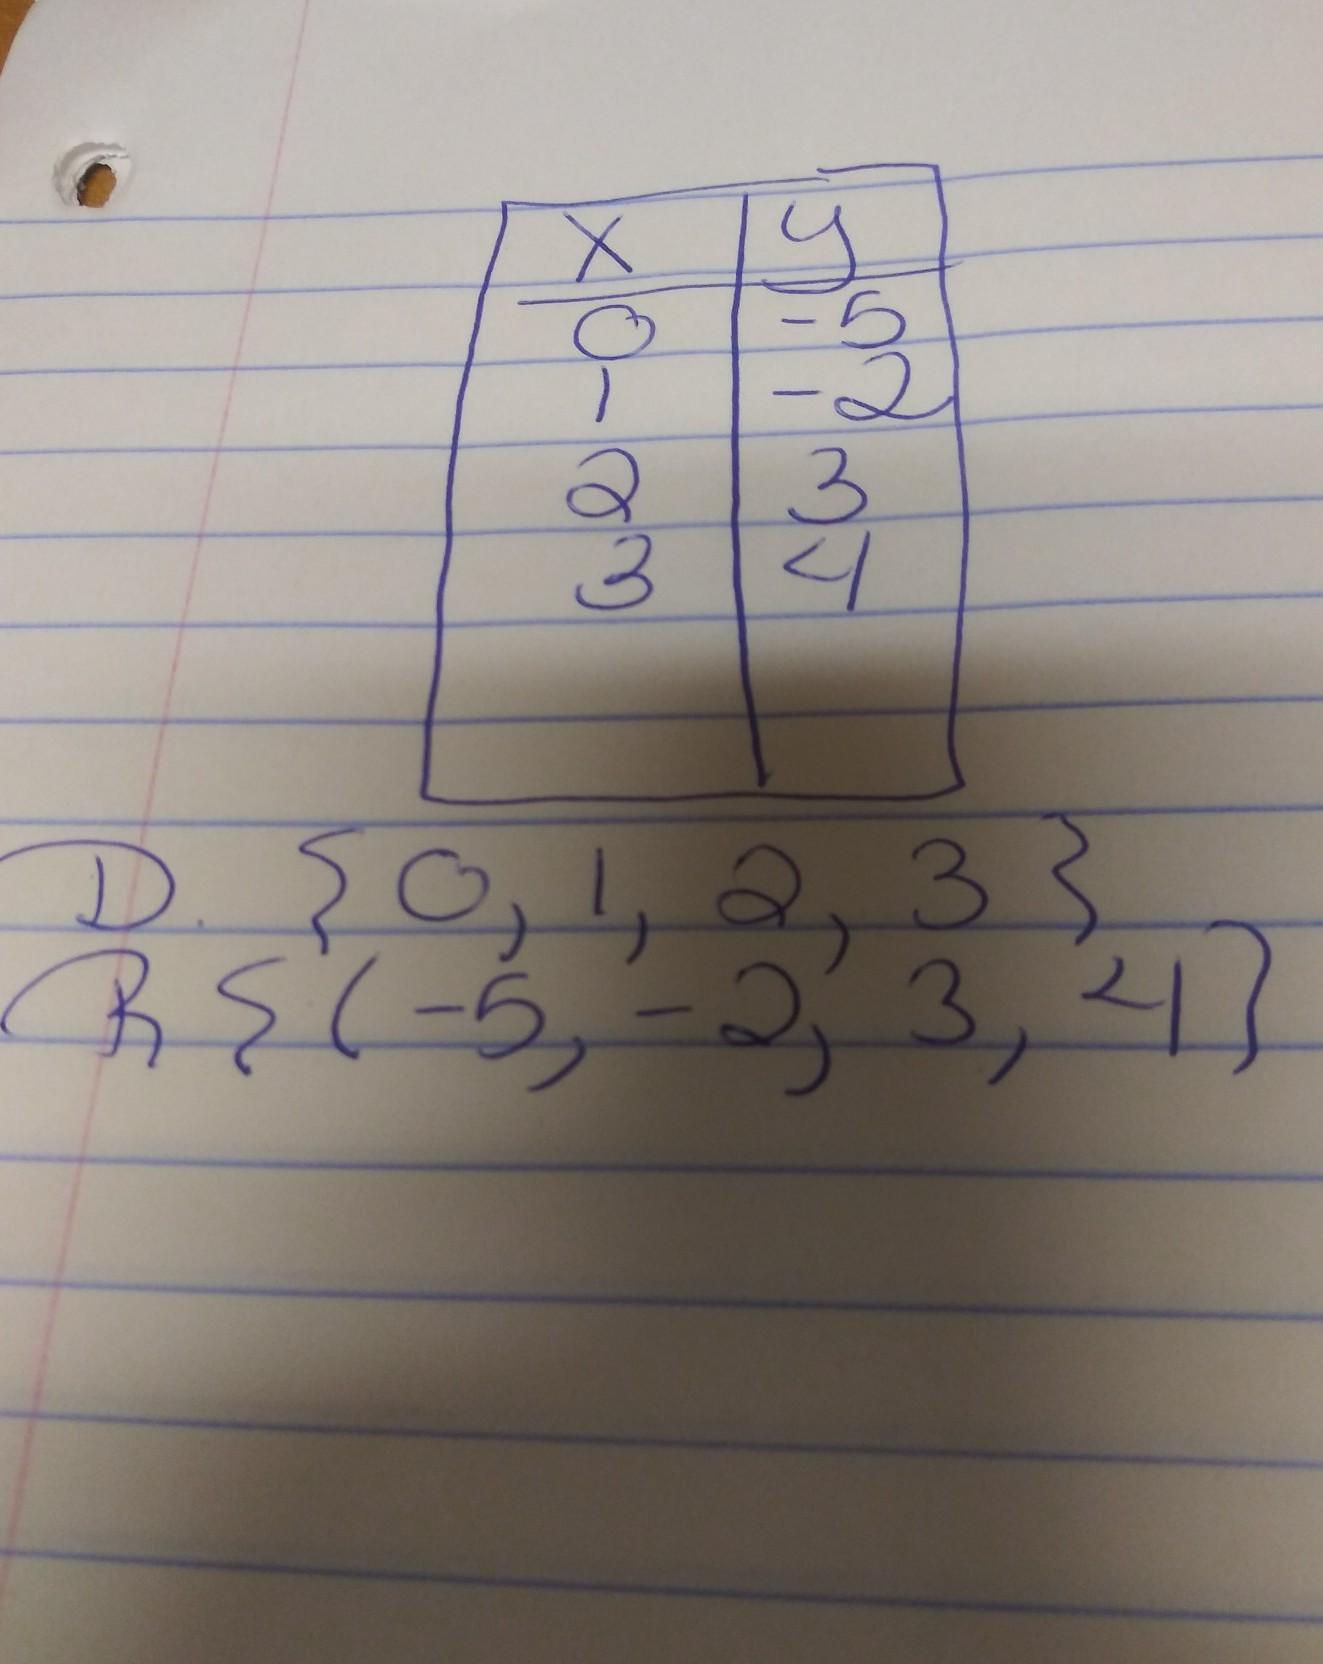 x y
0 -5
1 -2
2 3
3 4
D. {0, 1, 2, 3}
R {(-5, -2, 3, 4}